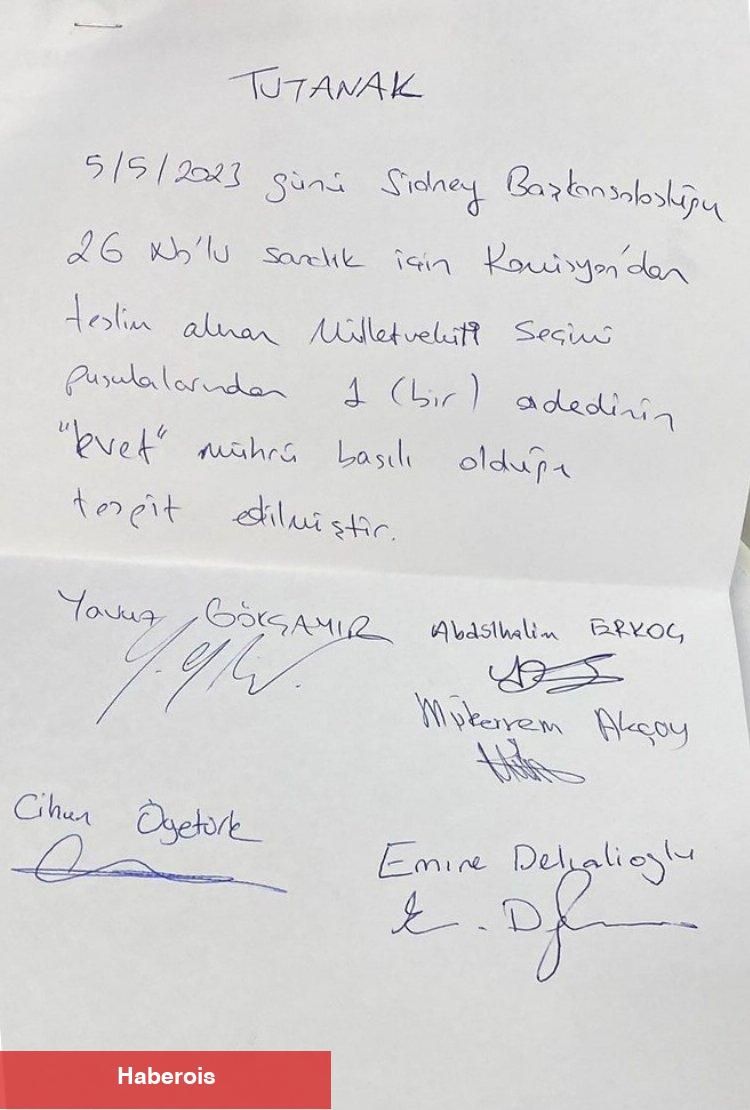 TUTANAK
5/5/2023 günü Sidney Başkonsolosluğu
26 No'lu sandık için Komisyon'dan
teslim alınan Milletvekili Seçimi
pusulalarından 1 (bir) adedinin
"Evet" mührü basılı olduğu
tespit edilmiştir.
Yavuz GÖKÇAMIR Abdulhalim ERKOÇ
Mükerrem Akçay
Cihan Ögetürk
Emine Delialioglu
E. D
Haberois